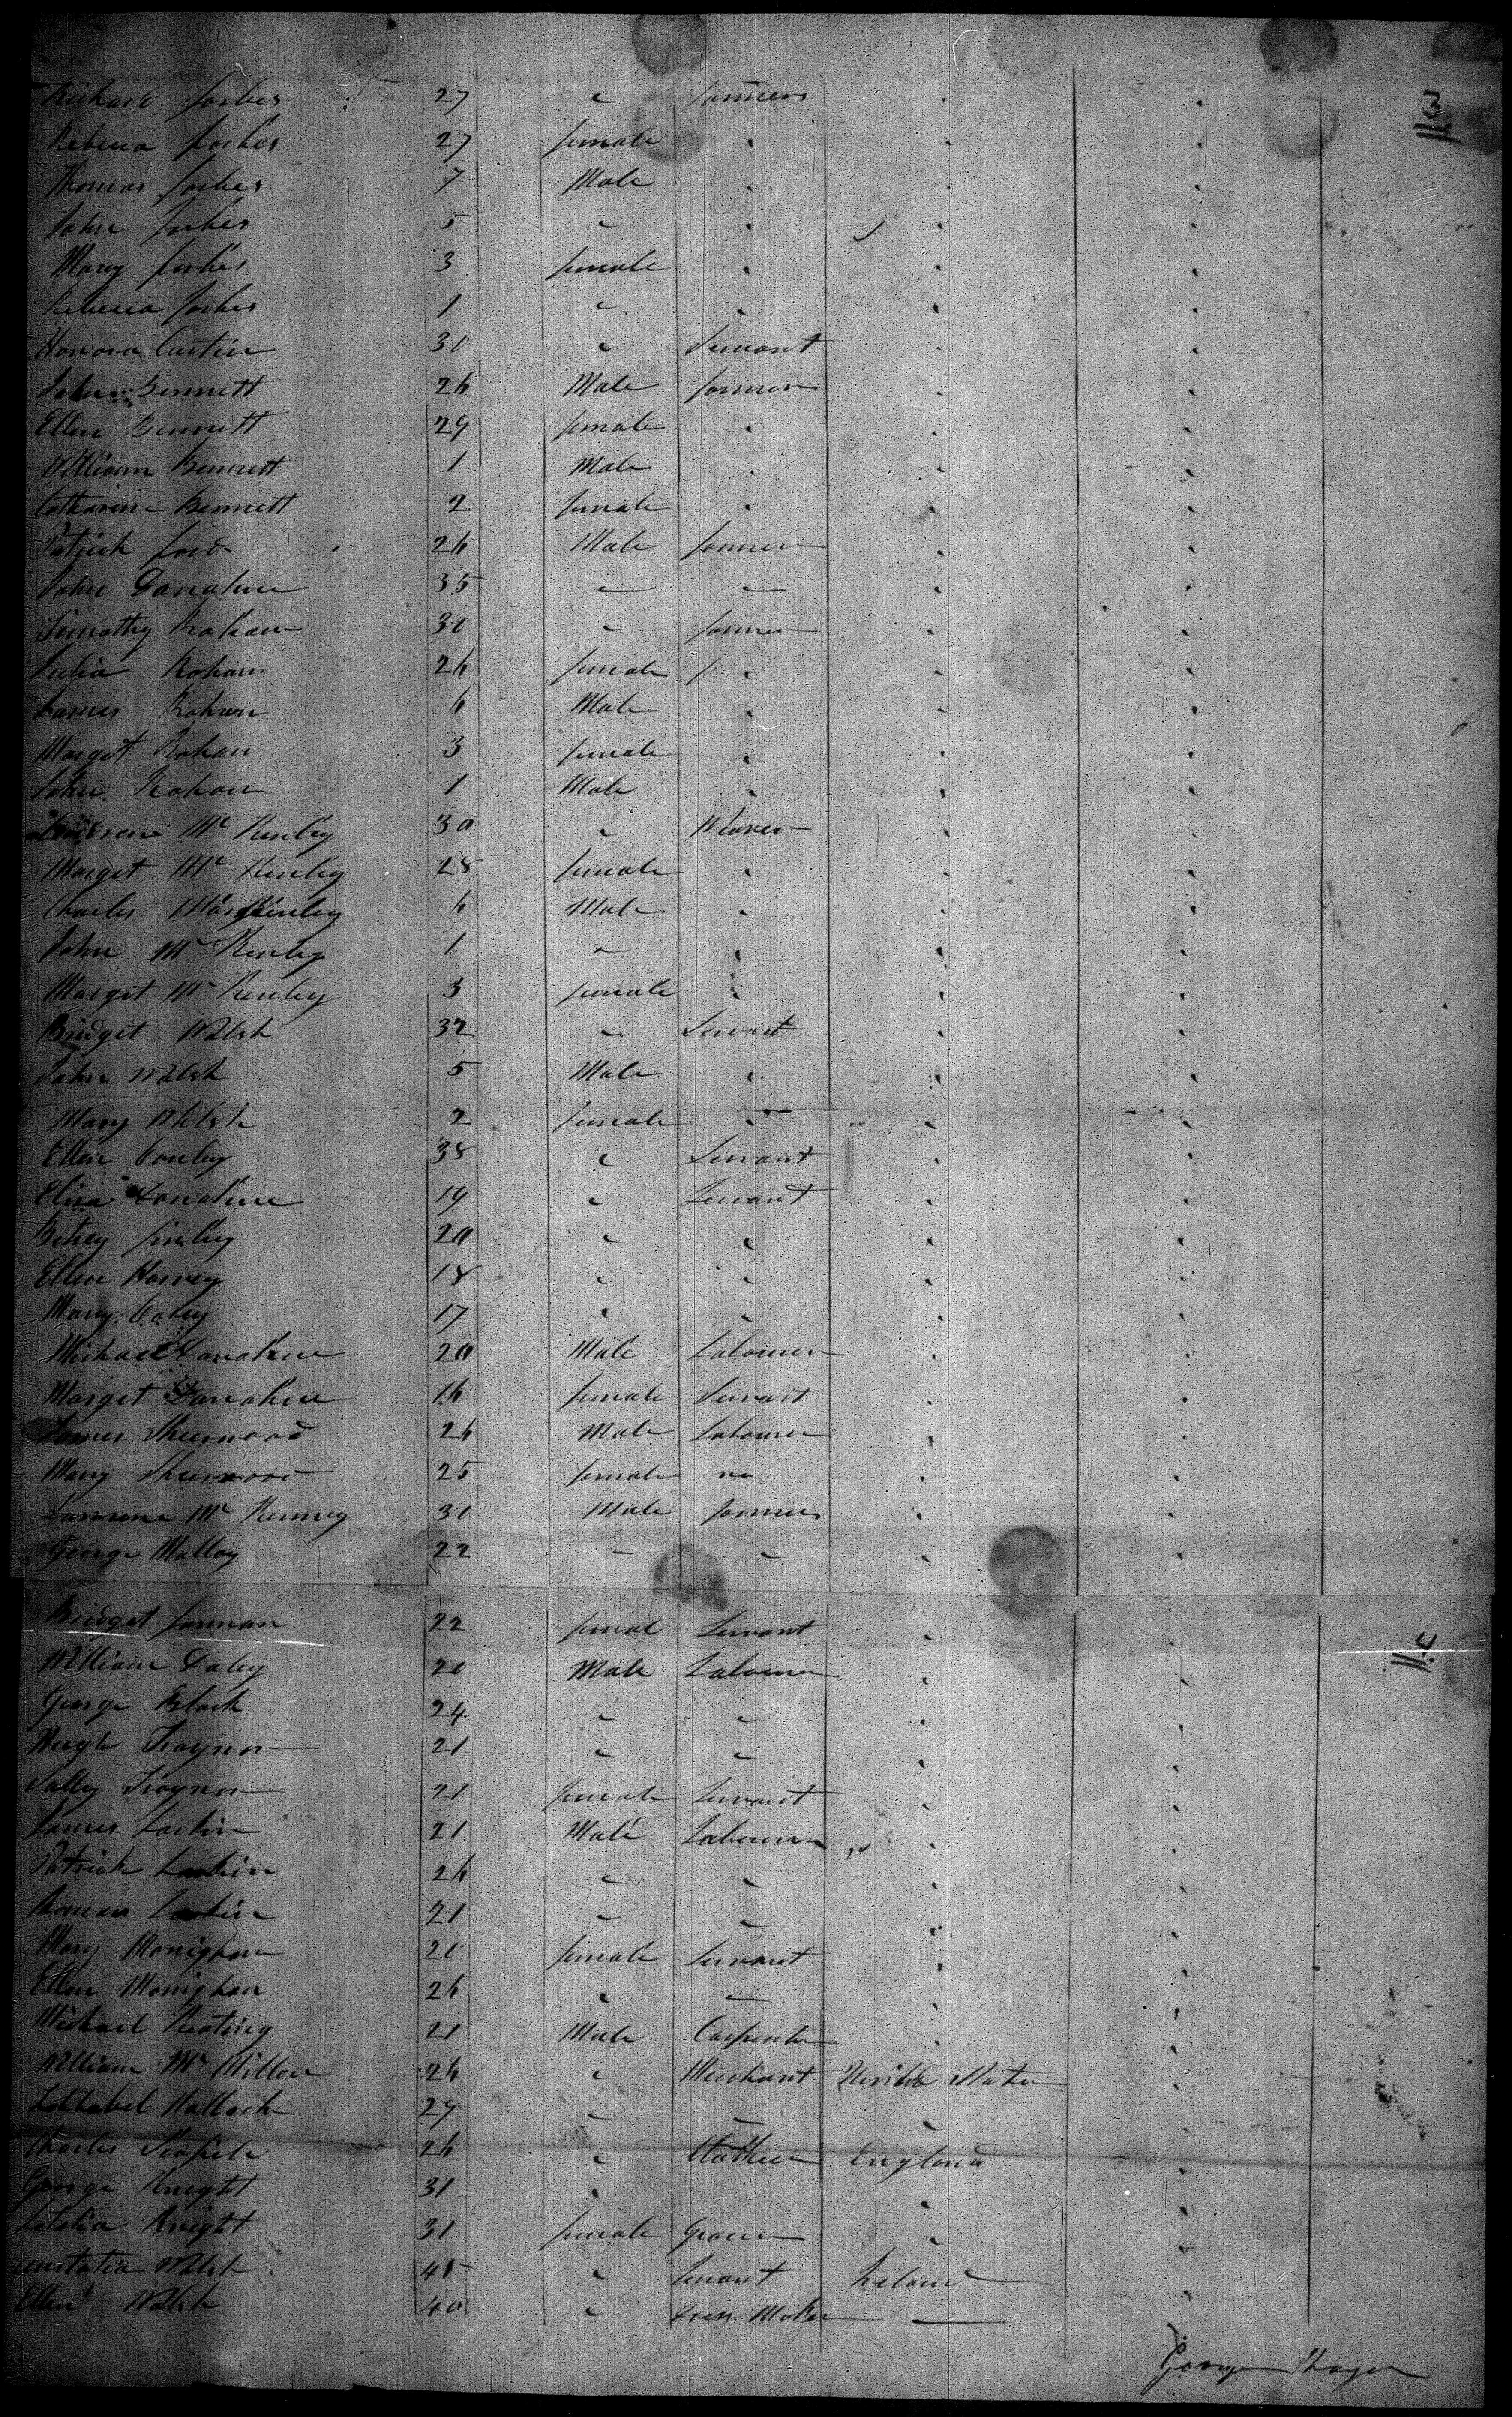 Richard forbes 27 " farmer
Rebecca forbes 27 female "
Thomas forbes 7 Male "
John forbes 5 " "
Mary forbes 3 female "
Rebecca forbes 1 " "
Honora Curtin 30 " Servant
John Bennett 26 Male farmer
Ellen Bennett 29 female "
William Bennett 1 Male "
Catharine Bennett 2 female "
Patrick ford 26 Male farmer
John Donahue 35 " "
Timothy Rohan 30 " farmer
Julia Rohan 26 female "
James Rohan 6 Male "
Marget Rohan 3 female "
John Rohan 1 Male "
Mc Kenley 30 " Weaver
Marget Mc Kenley 28 female "
Charles Kenley 6 Male "
John Mc Kenley 1 " "
Marget Mc Kenley 3 female "
Bridget Walsh 32 " Servant
John Walsh 5 Male "
Mary Walsh 2 female "
Ellen Conley 38 " Servant
Eliza Donahue 19 " Servant
Betsey finley 20 " "
Ellen Harvey 18 " "
Mary 17 " "
Michael Donahue 20 Male Labourer
Marget Donahue 16 female Servant
James Sherwood 26 Male Labourer
Mary Sherwood 25 female no
Lawrence Mc Kenney 30 Male farmer
George Malloy 22 " "
Bridget 22 femal Servant
William Daley 20 Male Labourer
George Black 24 " "
Hugh Traynor 21 " "
Sally Traynor 21 female Servant
James Larkin 21 Male Labourer
Patrick Larkin 26 " "
Thomas Larkin 21 " "
Mary Monighan 20 female Servant
Ellen Monighan 26 " "
Michael Keating 21 Male Carpenter
William Mc Millen 26 " Merchant United States
Hallock 29 " " "
Charles 26 " England
George Knight 31 " "
Letetia Knight 31 female Grocer "
Walsh 45 " Servant Ireland
Ellen Walsh 40 " Dress Maker
George